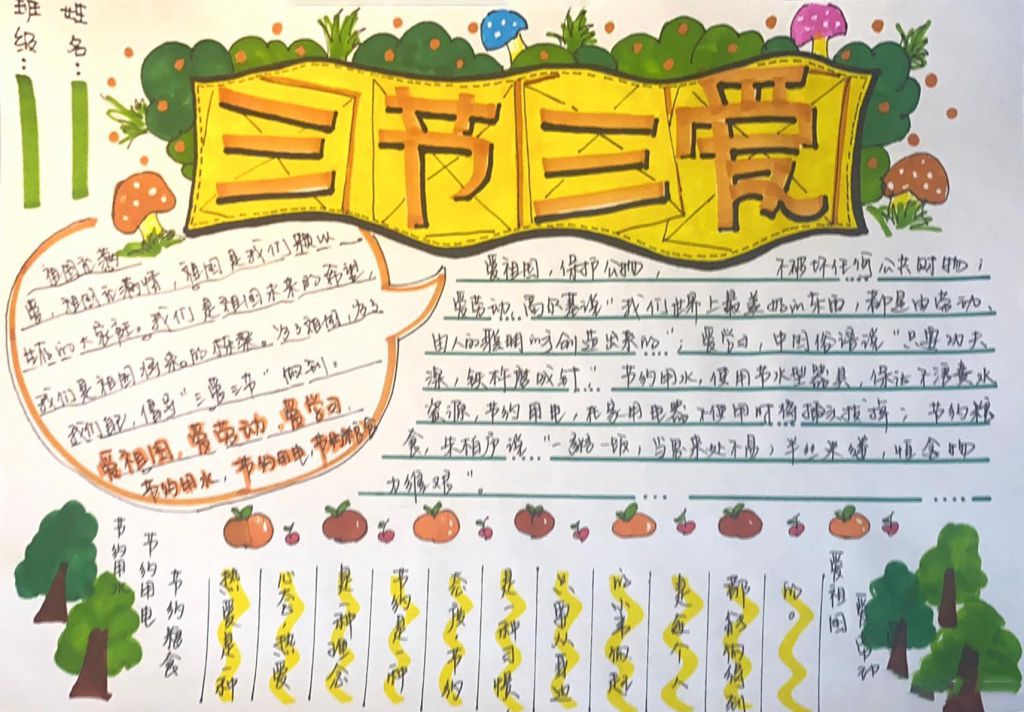 姓名：
班级：
三节三爱
爱，祖国我激情，祖国是我们
的大家庭。我们是祖国未来的希望，
我们是祖国将来的栋梁。为了祖国，为了
我们自己，倡导“三爱三节”
爱祖国，爱劳动，爱学习，
节约用水，节约用电，节约粮食
爱祖国，保护公物，不破坏任何公共财物；
爱劳动，高尔基说“我们世界上最美好的东西，都是由劳动、
由人的聪明的手创造出来的”；爱学习，中国俗语说“只要功夫
深，铁杵磨成针”节约用水，使用节水型器具，保证不浪费水
资源，节约用电，在家用电器不使用时将插头拔掉；节约粮
食，朱柏庐说“一粥一饭，当思来处不易；半丝半缕，恒念物
力维艰”。
节约用水
节约用电
节约粮食
热爱是一种
心态，热爱
是一种理念
节约是一种
态度，节约
是一种习惯
只要从身边
的小事做起
是每个人
都能做得到
的。
爱祖国
爱劳动